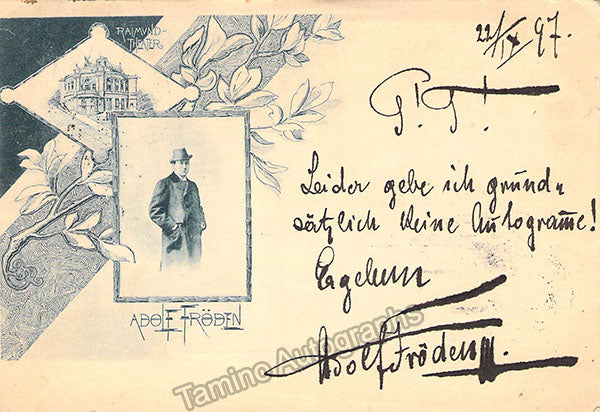 RAIMUND-
THEATER
22/IX 97.
P! T!
Leider gebe ich grund-
sätzlich keine Autograme!
Ergebenst
Adolf Fröden.
ADOLF FRÖDEN
Tamino Autographs